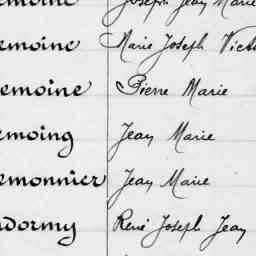 emoine Joseph Jean Marie
emoine Marie Joseph Victo
emoine Pierre Marie
emoing Jean Marie
emonnier Jean Marie
dormy René Joseph Jean